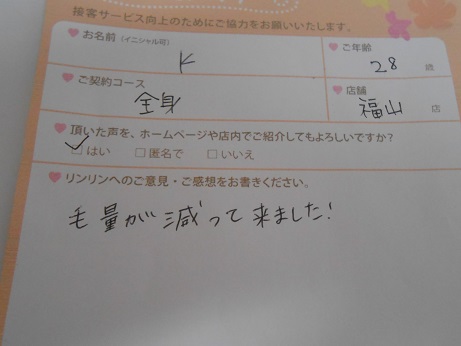 接客サービス向上のためにご協力をお願いいたします。
お名前（イニシャル可）
K
ご年齢
28 歳
ご契約コース
全身
店舗
福山 店
頂いた声を、ホームページや店内でご紹介してもよろしいですか？
はい □ 匿名で □ いいえ
リンリンへのご意見・ご感想をお書きください。
毛量が減って来ました!